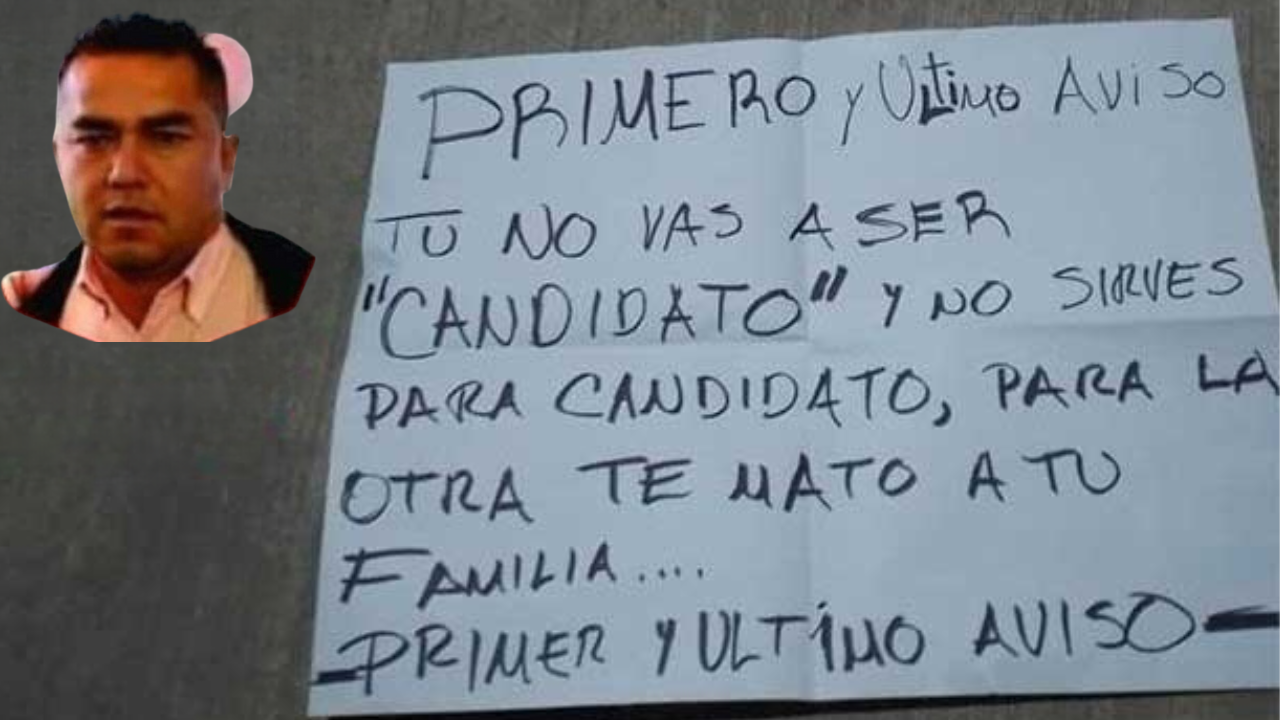 PRIMERO y ULtimo AViSo
TU NO VAS A SER
"CANDIDATO" Y NO SIRVES
PARA CANDIDATO, PARA LA
OTRA TE MATO A TU
FAMILIA....
-PRIMER Y ULTiMO AVISO-